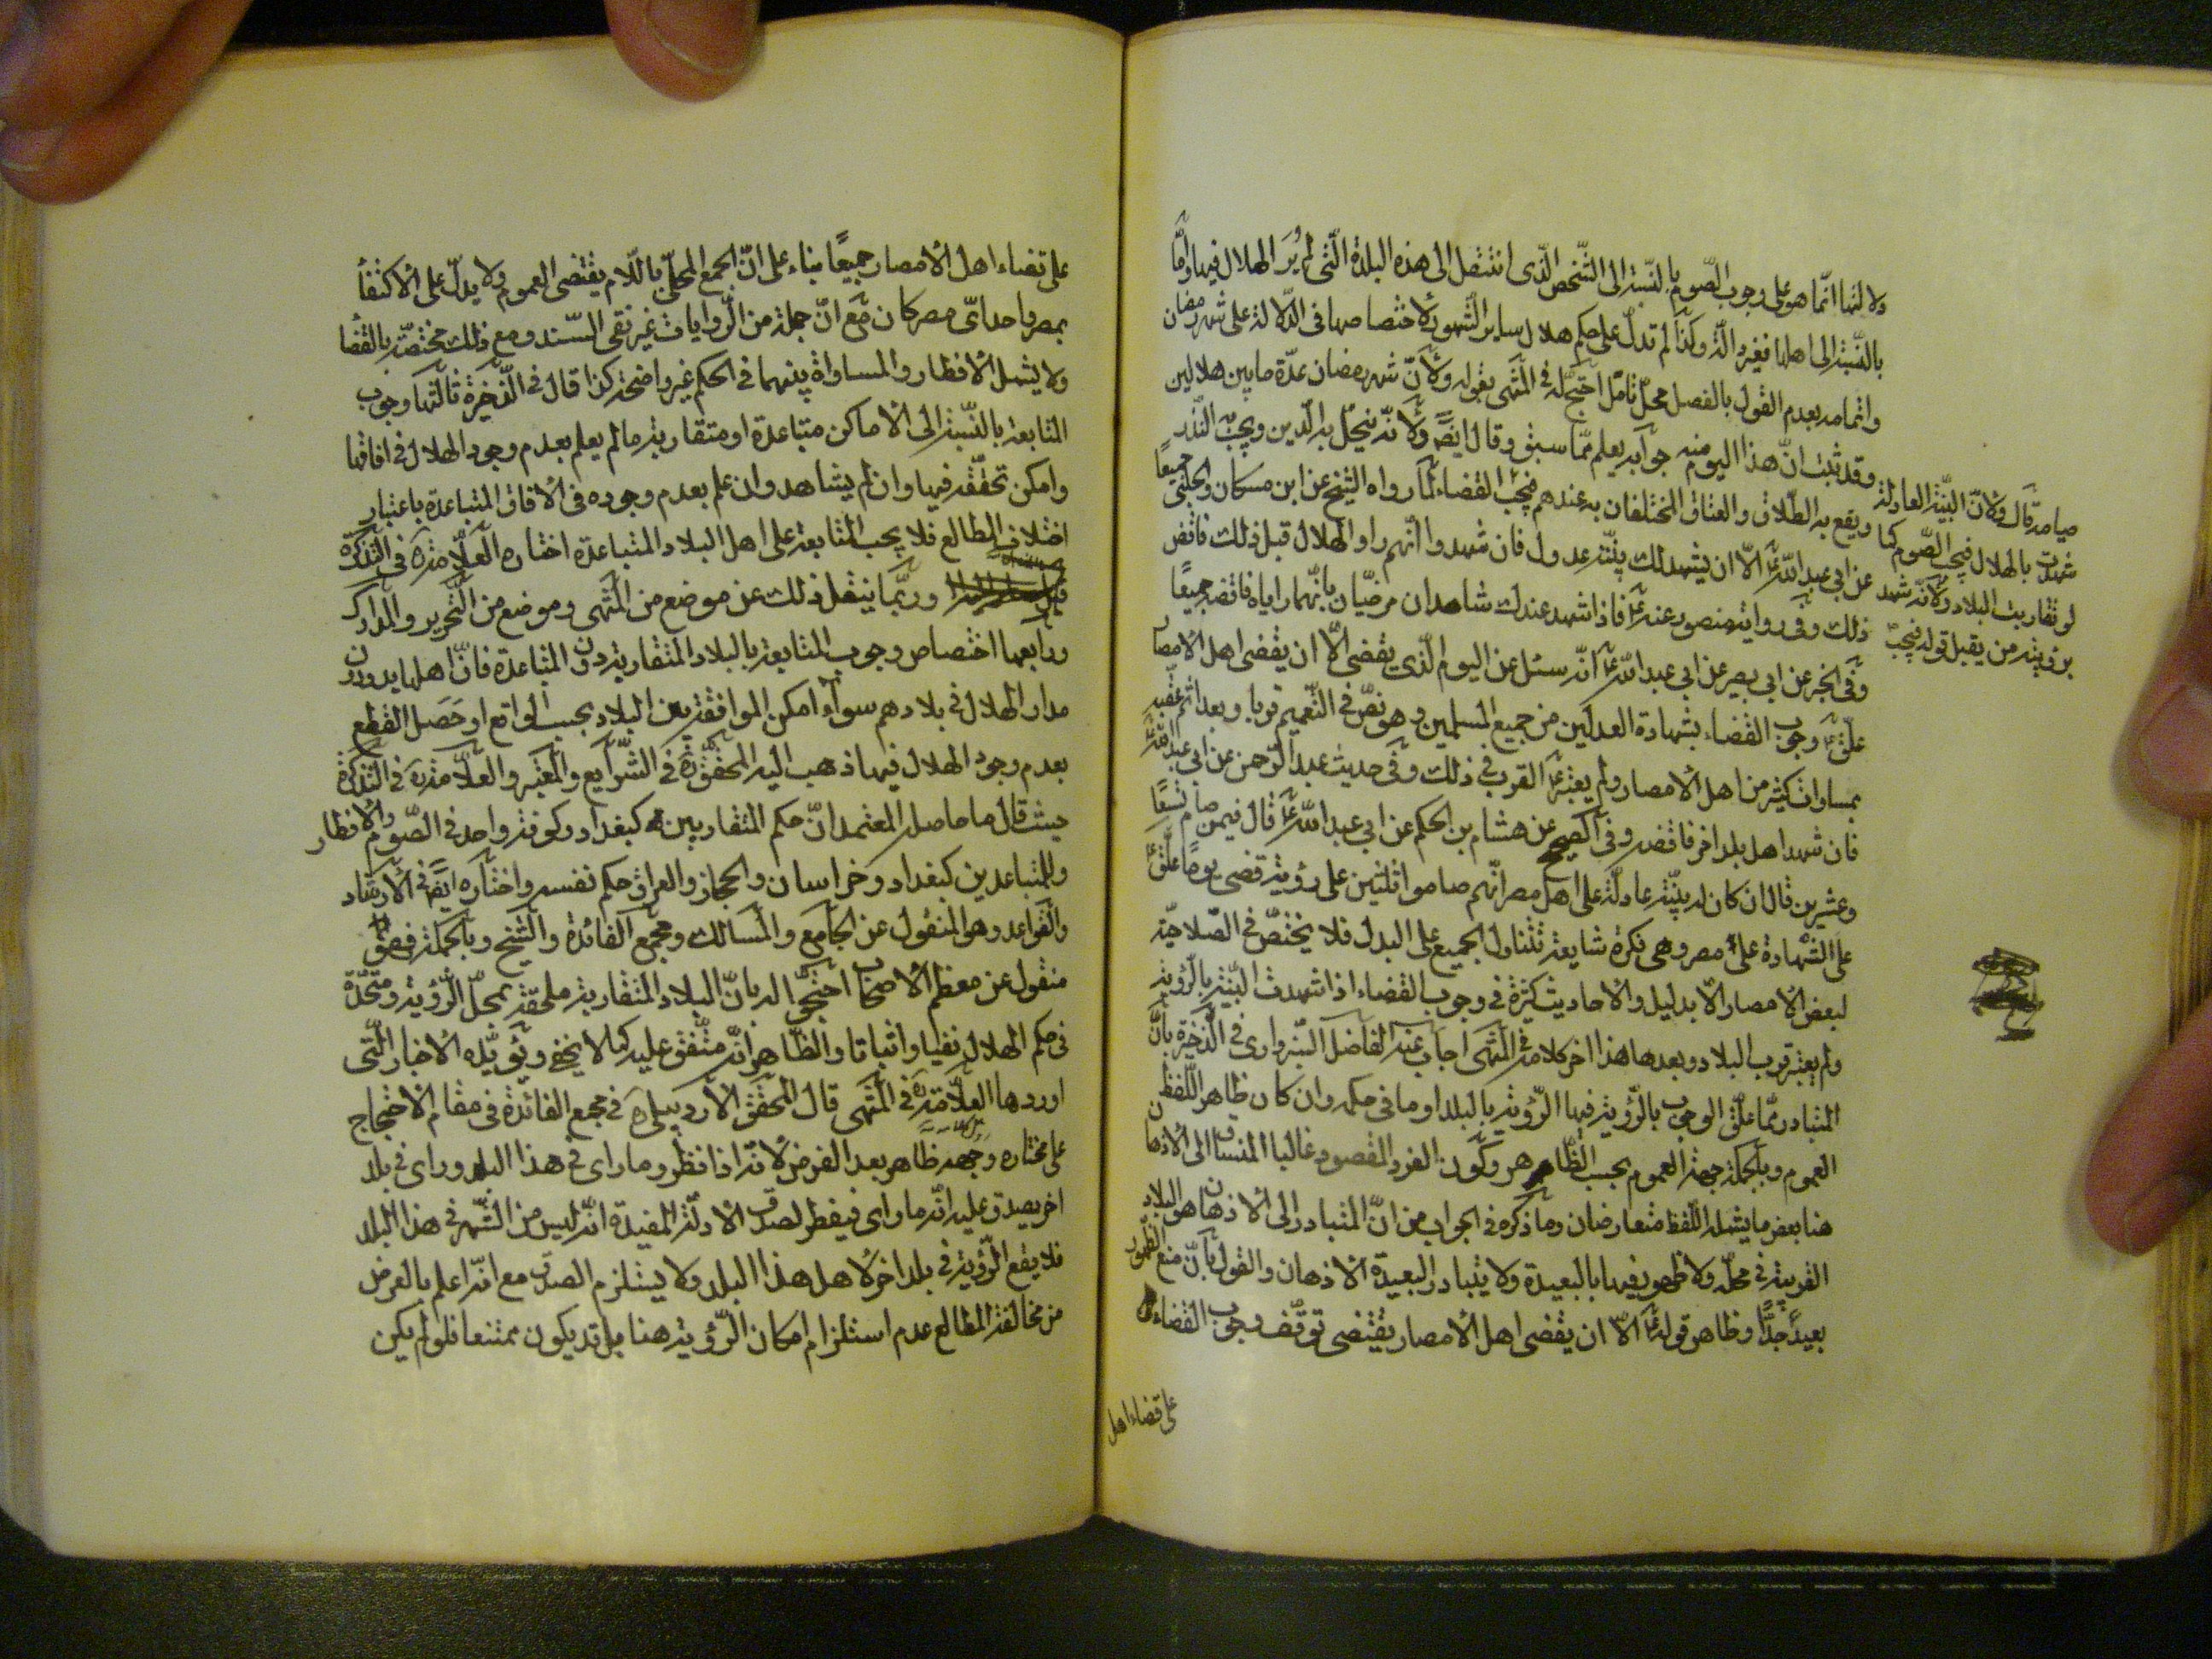 دلالتها انّما هو على وجوب الصّوم بالنّسبة الى الشّخص الّذى انتقل الى هذه البلدة الّتى لم يُرَ الهلال فيها وامّا
بالنّسبة الى اهلها فغير دالّة وكذا لم تدلّ على حكم هلال ساير الشّهور لاختصاصها فى الدّلالة على شهر رمضان
واتمامه بعدم القول بالفصل محلّ تامّل احتجّ له فى المنتهى بقوله ولانّ شهر رمضان عدّة ما بين هلالين
وقد ثبت انّ هذا اليوم منه جوابه يعلم ممّا سبق وقال ايضًا ولانّه يحلّ به الدّين ويجب به النّذر
ويقع به الطّلاق والعتاق المختلفان به عندهم فيجب القضاء لما رواه الشيخ عن ابن مسكان والحلبى جميعًا
عن ابى عبد اللّه ع الّا ان يشهد لك بيّنة عدول فان شهدوا انّهم راوا الهلال قبل ذلك فاقض
ذلك وفى رواية منصور عنه ع فاذا شهد عندك شاهدان مرضيّان بانّهما راياه فاقضه جميعًا
وفى الخبر عن ابى بصير عن ابى عبد اللّه ع انّه سئل عن اليوم الّذى يقضى الّا ان يقضى اهل الامصار
علّق ع وجوب القضاء بشهادة العدلين من جميع المسلمين وهو نصّ فى التّعميم قربا وبعدا ثم عقّبه
بمساواة كثير من اهل الامصار ولم يعتبر ع القرب فى ذلك وفى حديث عبد الرّحمن عن ابى عبد اللّه ع
فان شهد اهل بلد اخر فاقضه وفى الصحيح عن هشام بن الحكم عن ابى عبد اللّه ع قال فيمن صام تسعًا
وعشرين قال ان كان له بيّنة عادلة على اهل مصر انّهم صاموا ثلثين على رؤية قضى يومًا علّق ع
على الشّهادة على مصر وهى نكرة شايعة تتناول الجميع على البدل فلا يختصّ فى الصّلاحيّة
لبعض الامصار الّا بدليل والاحاديث كثيرة فى وجوب القضاء اذا شهدت البيّنة بالرّؤية
ولم يعتبر قرب البلاد وبعدها هذا اخر كلامه فى المنتهى اجاب عنه الفاضل السّبزوارى فى الذّخيرة بانّ
المتبادر ممّا علّق الوجوب بالرّؤية فيها الرّؤية بالبلد او ما فى حكمه وان كان ظاهر اللّفظ
العموم وبالجملة جهة العموم بحسب الظّاهر وكون الفرد المقصود غالبا المنساق الى الاذهان
هنا بعض ما يشمله اللّفظ متعارضان وما ذكره فى الجواب من انّ المتبادر الى الاذهان هو البلاد
القريبة فى محلّه ولا ظهور فيها بالبعيدة ولا يتبادر البعيدة الاذهان والقول بانّ منع الظّهور
بعيد جدًّا وظاهر قوله ع الّا ان يقضى اهل الامصار يقتضى توقّف وجوب القضاء
على قضاء اهل
صيامه قال ولانّ البيّنة العادلة
شهدت بالهلال فيجب الصّوم كما
لو تقاربت البلاد ولانّه شهد
برؤيته من يقبل قوله فيجب
على قضاء اهل الامصار جميعًا بناء على انّ الجمع المحلّى باللّام يقتضى العموم ولا يدلّ على الاكتفاء
بمصر واحد اىّ مصر كان مع انّ جملة من الرّوايات غير نقى السّند ومع ذلك مختصّة بالقضاء
ولا يشمل الافطار والمساواة بينهما فى الحكم غير واضحة كذا قال فى الذّخيرة ثالثها وجوب
المتابعة بالنّسبة الى الاماكن متباعدة او متقاربة ما لم يعلم بعدم وجود الهلال فى افاقها
وامكن تحقّقه فيها وان لم يشاهد وان علم بعدم وجوده فى الافاق المتباعدة باعتبار
اختلاف المطالع فلا يجب المتابعة على اهل البلاد المتباعدة اختاره العلّامة ره فى التذكرة
وربّما ينقل ذلك عن موضع من المنتهى وموضع من التّحرير والمدارك
رابعها اختصاص وجوب المتابعة بالبلاد المتقاربة دون المتباعدة فانّ اهلها يدورون
مدار الهلال فى بلادهم سواء امكن الموافقة بين البلاد بحسب الواقع او حَصَل القطع
بعدم وجود الهلال فيها ذهب اليه المحقّق ره فى الشّرايع والمعتبر والعلّامة ره فى التذكرة
حيث قال ما حاصله المعتمد انّ حكم المتقاربين كبغداد وكوفة واحد فى الصّوم والافطار
وللمتباعدين كبغداد وخراسان والحجاز والعراق حكم نفسه واختاره ايضًا فى الارشاد
والقواعد وهو المنقول عن الجامع والمسالك ومجمع الفائدة والشّيخ وبالجملة فهو
منقول عن معظم الاصحاب احتجّوا له بانّ البلاد المتقاربة ملحقة بمحلّ الرّؤية ومتّحدة
فى حكم الهلال نفيا واثباتا والظّاهر انّه متّفق عليه كما لا يخفى ويؤيّده الاخبار الّتى
اوردها العلّامة ره فى المنتهى قال المحقّق الاردبيلى ره فى مجمع الفائدة فى مقام الاحتجاج
على مختاره وجهه ظاهر بعد الفرض لانّه اذا نظر وما راى فى هذا البلد وراى فى بلد
اخر يصدق عليه انّه ما راى فيفطر لصدق الادلّة المفيدة انّه ليس من الشّهر فى هذا البلد
فلا يقع الرّؤية فى بلد اخر لاهل هذا البلد ولا يستلزم الصدق مع انّه اعلم بالفرض
من مخالفة المطالع عدم استلزام امكان الرّؤية هنا بل قد يكون ممتنعا فلو لم يكن